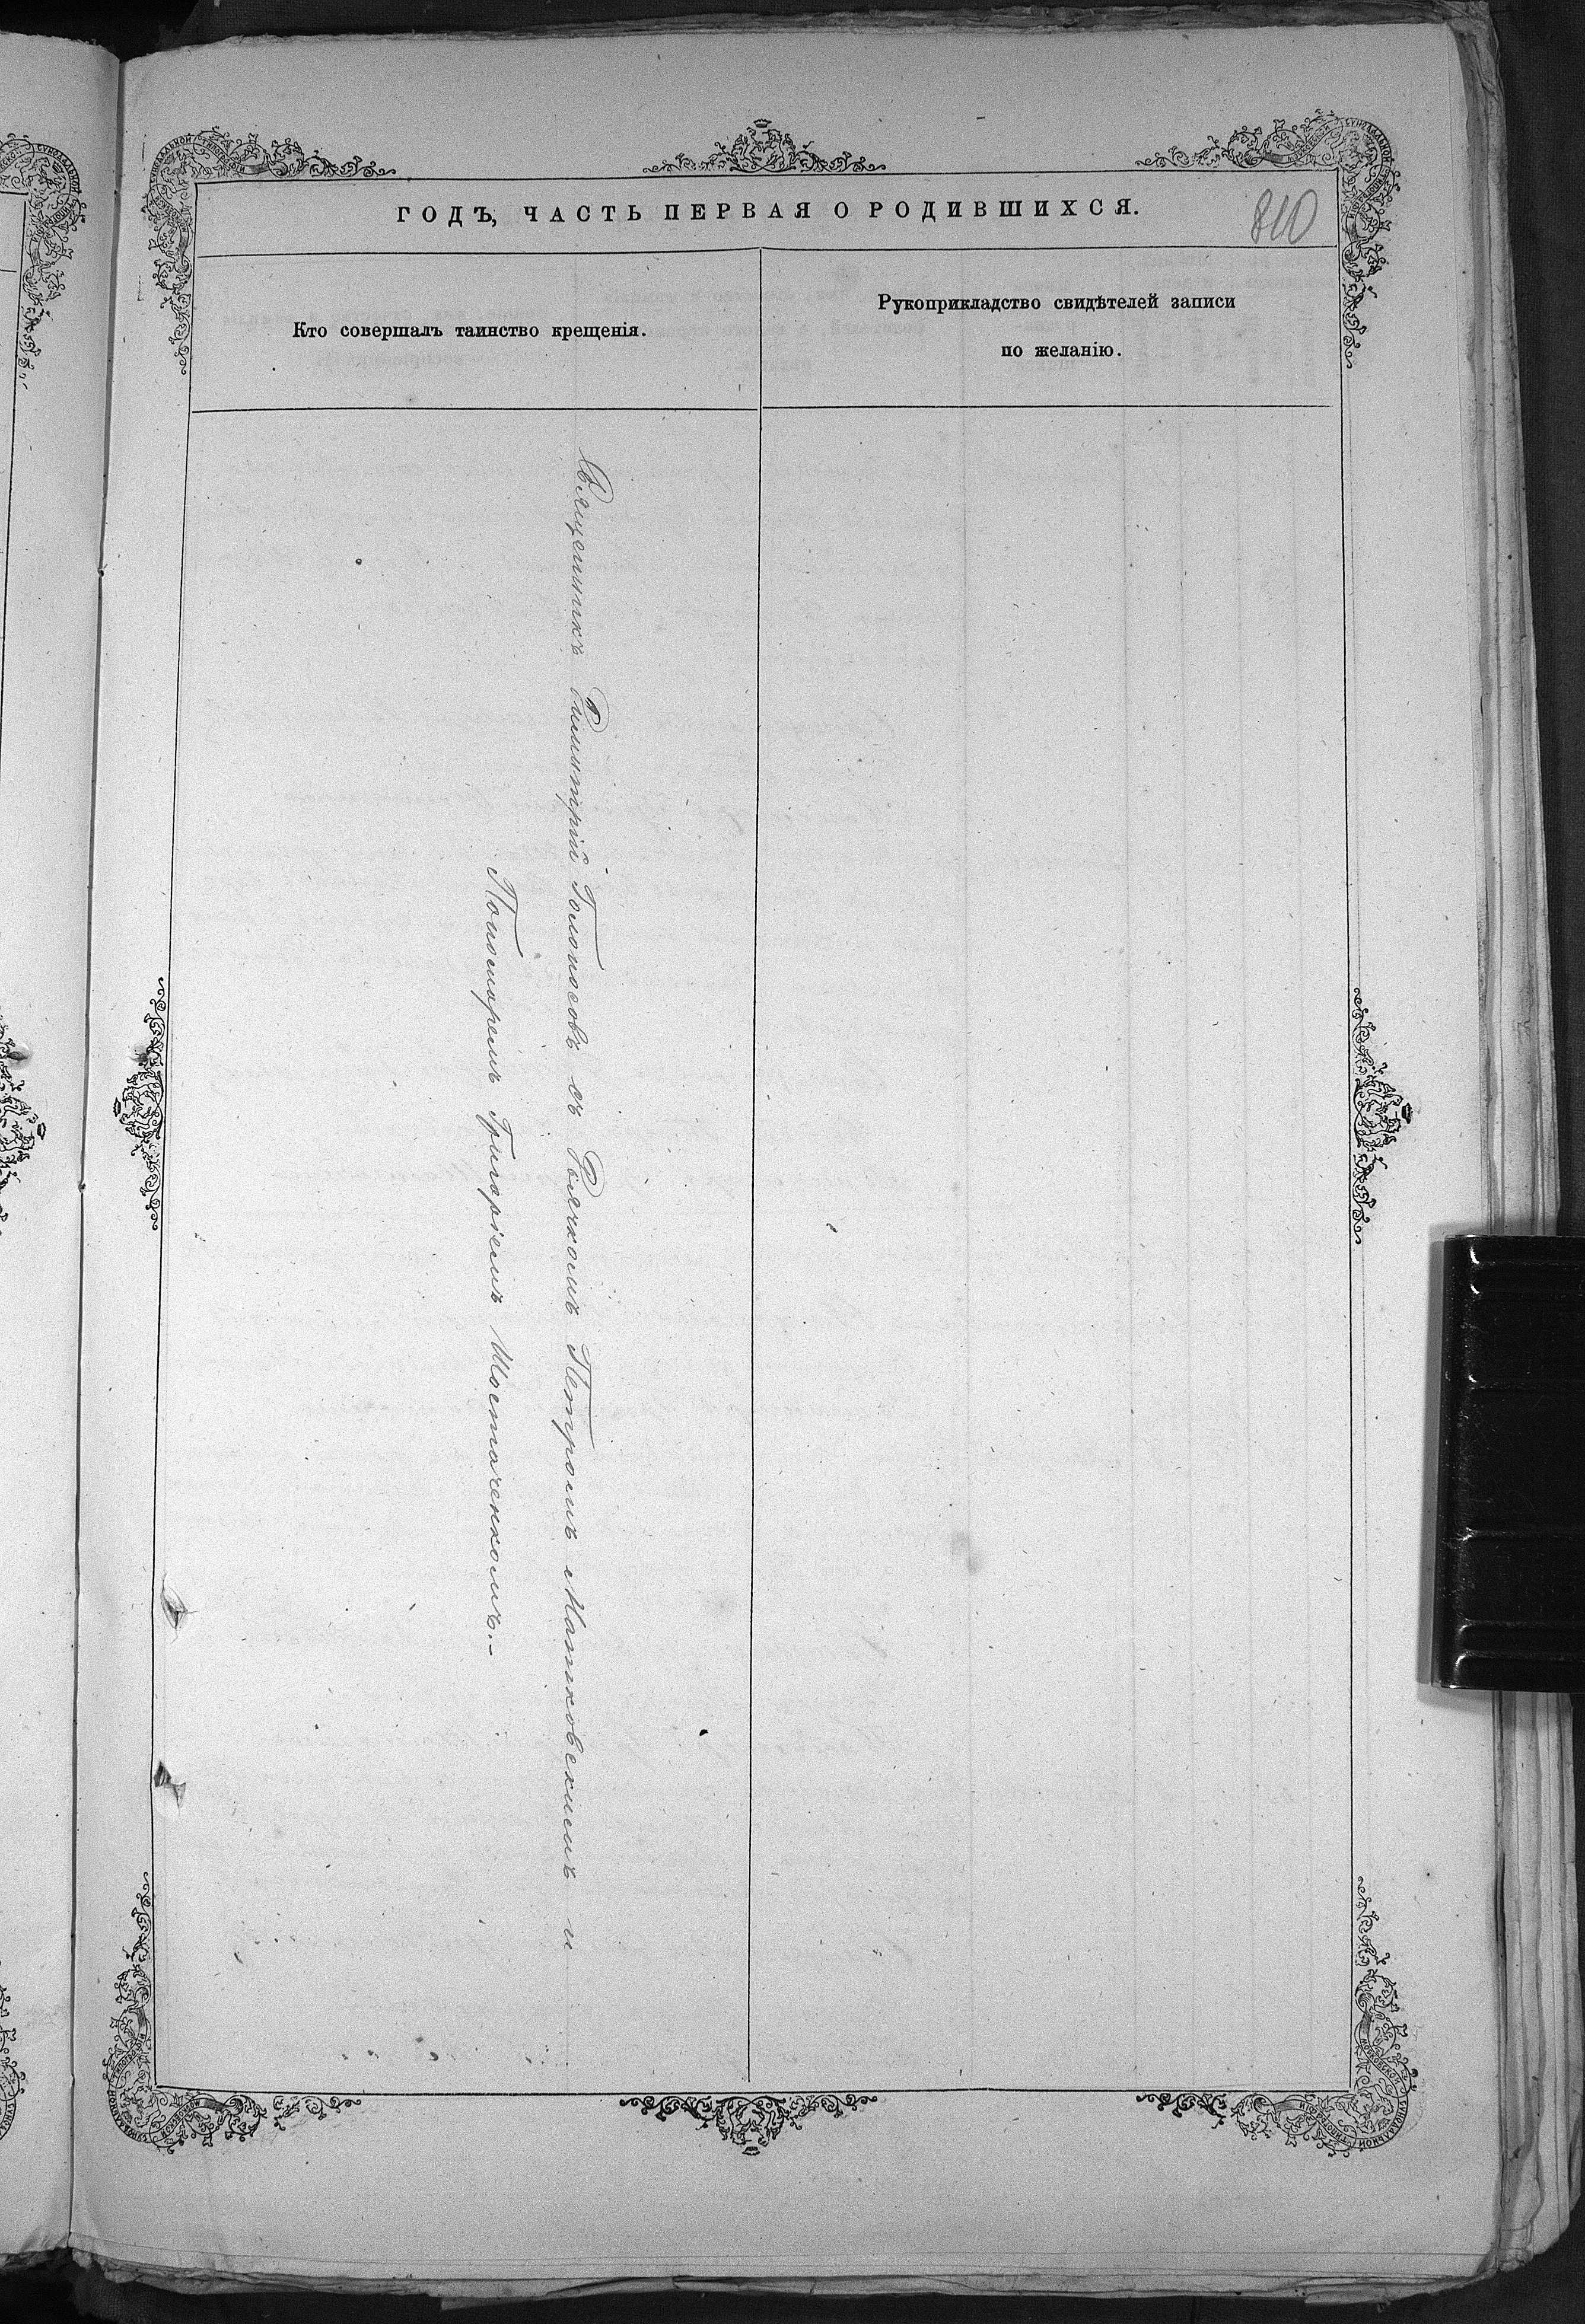 ГОДЪ, ЧАСТЬ ПЕРВАЯ О РОДИВШИХСЯ.
810
Кто совершалъ таинство крещенія.
Рукоприкладство свидѣтелей записи
по желанію.
Священникъ Димитрій Голоносовъ съ Дьячкомъ Петромъ Матковскимъ и
Пономаремъ Григоріемъ Шостаченкомъ.-